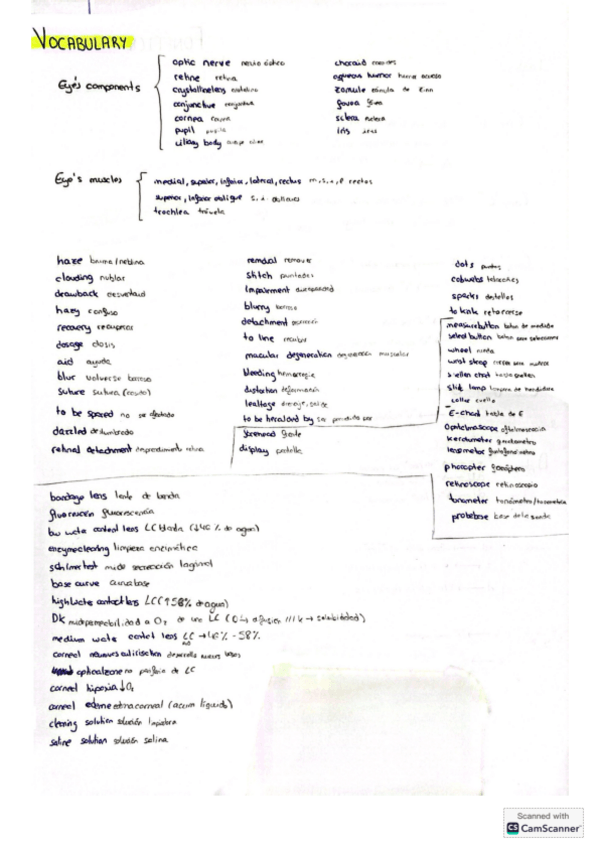 VOCABULARY
Eye's components
optic nerve nervio óptico
retine retina
crystallinelens cristalino
conjunctive conjuntiva
cornea cornea
pupil pupila
ciliary body cuerpo ciliar
choroid coroides
aqueous humor humor acuoso
zonule zónula de Zinn
fovea fóvea
sclera esclera
iris iris
Eye's muscles
medial, superior, inferior, lateral, rectus m, s, i, l rectos
superior, inferior oblique s. i. oblicuos
trochlea tróclea
haze bruma/neblina
clouding nublar
drawback desventaja
hazy confuso
recovery recuperar
dosage dosis
aid ayuda
blur volverse borroso
suture sutura (cosido)
to be spared no ser afectado
dazzled deslumbrado
retinal detachment desprendimiento retina
removal remover
stitch puntadas
impairment
blurry borroso
detachment
to line recubrir
macular degeneration degeneración macular
bleeding hemorragia
distortion deformación
leakage
to be herald by ser precedido por
screened
display pantalla
dots puntos
cobwebs telarañas
sparks destellos
to kink retorcerse
measurebutton botón de medida
select button botón para seleccionar
wheel rueda
wrist strap correa para muñeca
snellen chart
slit lamp lámpara de hendidura
collar cuello
E-chart tabla de E
Opthalmoscope oftalmoscopio
keratometer queratómetro
lensmeter
phoropter foróptero
retinoscope retinoscopio
tonometer tonómetro
probebase base de la sonda
bandage lens lente de banda
fluorescein fluoresceína
low wate contact lens LC blanda (↓40% de agua)
enzymecleaning limpieza enzimática
schirmer test mide secreción lagrimal
base curve curva base
high wate contactlens LC (↑58% de agua)
DK permeabilidad a O₂ de una LC (D → difusión /// K → solubilidad)
medium wate contact lens LC → 40% - 58%
corneal neovascularisation desarrollo nuevos vasos
opticalzone no periferia de LC
corneal hipoxia ↓O₂
corneal edema estroma corneal (acum líquido)
cleaning solution solución limpiadora
saline solution solución salina
Scanned with
CS CamScanner